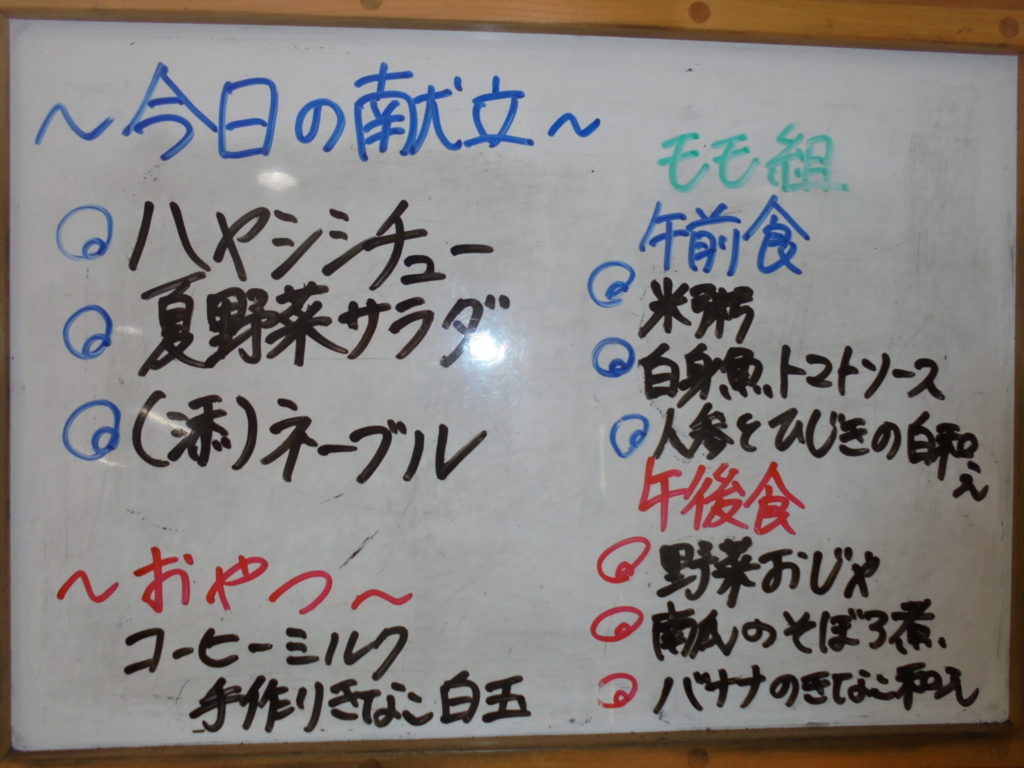 ～今日の献立～
ハヤシシチュー
夏野菜サラダ
(添)ネーブル
～おやつ～
コーヒーミルク
手作りきなこ白玉
モモ組
午前食
米粥
白身魚、トマトソース
人参とひじきの白和え
午後食
野菜おじや
南瓜のそぼろ煮、
バナナのきなこ和え